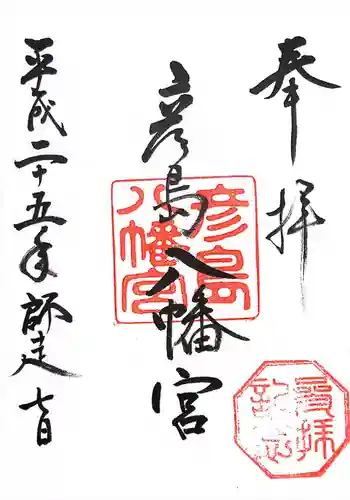 奉拝
彦島八幡宮
彦島八幡宮
平成二十五年師走七日
参拝記念